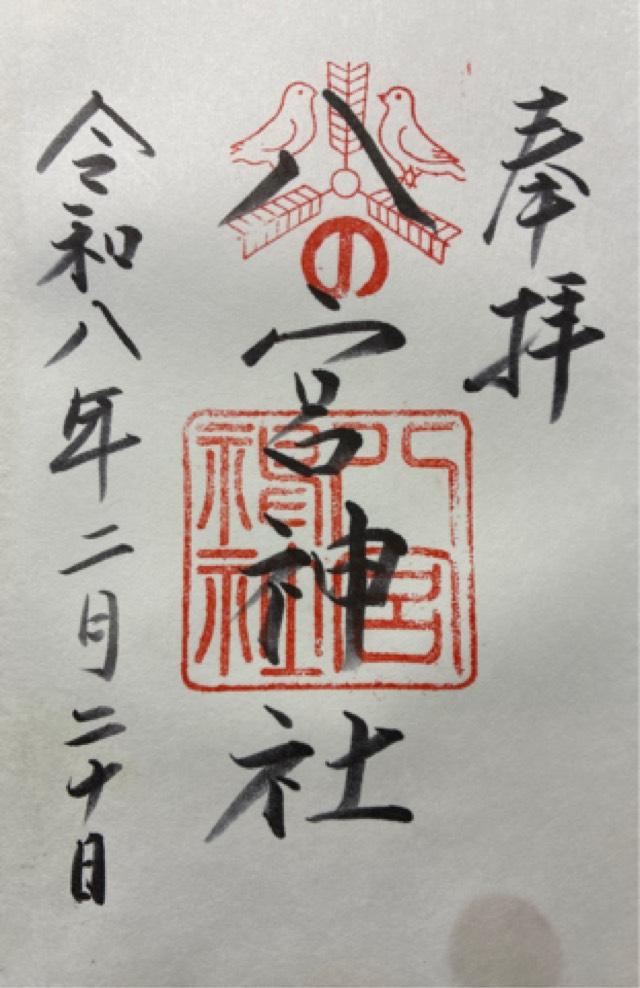 奉拝
八宮神社
の
八宮神社
令和八年二月二十日